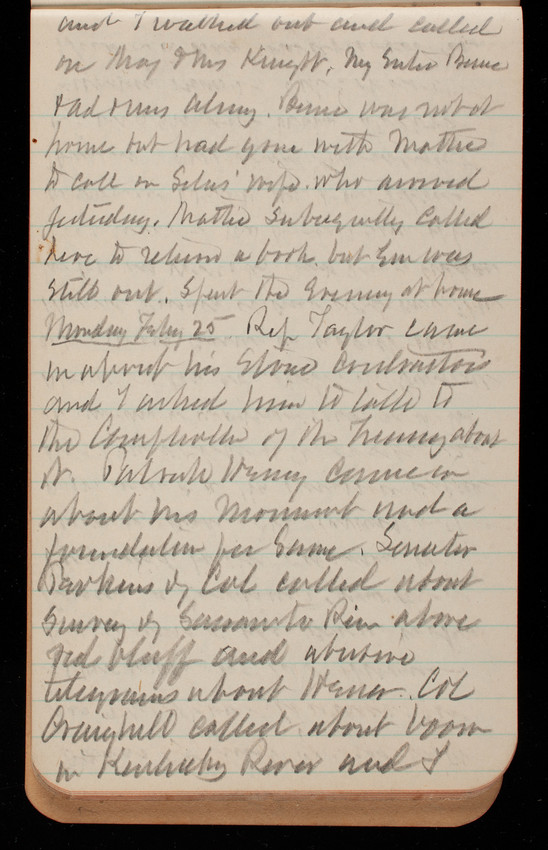 and I walked out and called
on Maj & Mrs Knight, My Sister Bessie
& ad & Mrs Almy. Bessie was not at
home but had gone with Mattie
to call on Silas' wife who arrived
yesterday. Mattie subsequently called
here to return a book but Em was
still out. Spent the Evening at home
Monday Feby 25 Rep Taylor came
in about his Stone contractors
and I asked him to talk to
the Comptroller of the Treasury about
it. Patrick Henry came in
about his Monument and a
foundation for same. Senator
Perkins of Cal called about
Survey of Sacramento River above
red bluff and abusive
telegrams about Heuer. Col
Craighill called about boom
in Kentucky River and I